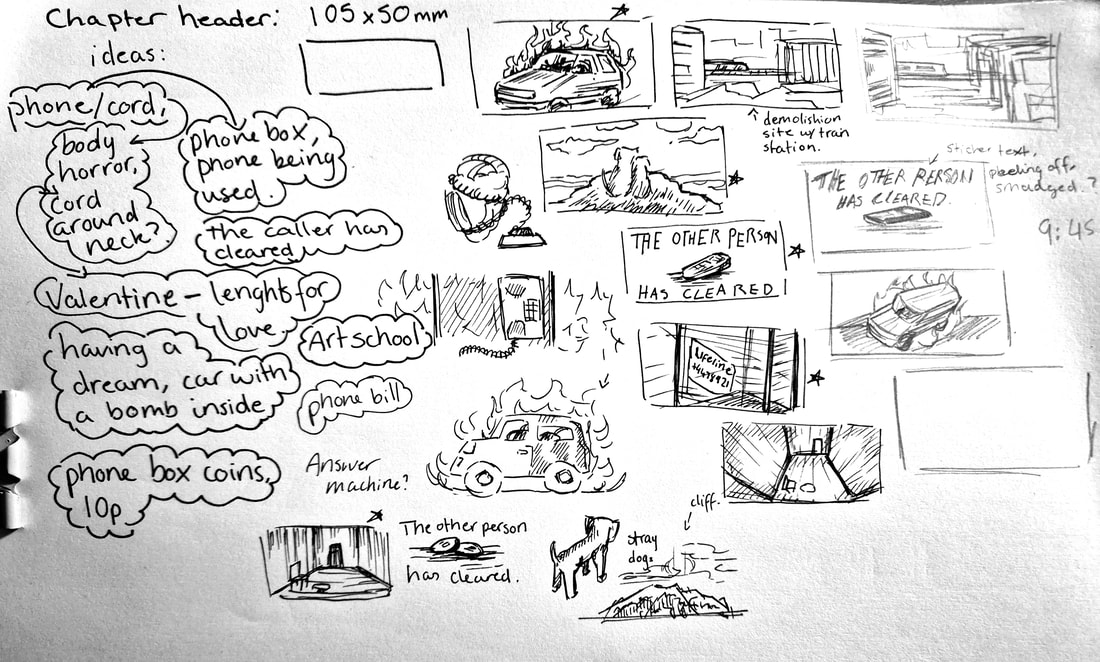 Chapter header: 105x50mm
ideas:
phone/cord,
body
horror,
cord
around
neck?
phone box,
phone being
used.
the caller has
cleared
Valentine - lenghts for
love
Art school
having a
dream, car with
a bomb inside
phone bill
phone box coins,
10p
Answer
machine?
demolishion
site w/ train
station.
sticker text,
peeling off,
smudged.?
THE OTHER PERSON
HAS CLEARED.
9:45
THE OTHER PERSON
HAS CLEARED
Lifeline
The other person
has cleared.
stray
dogs
cliff.